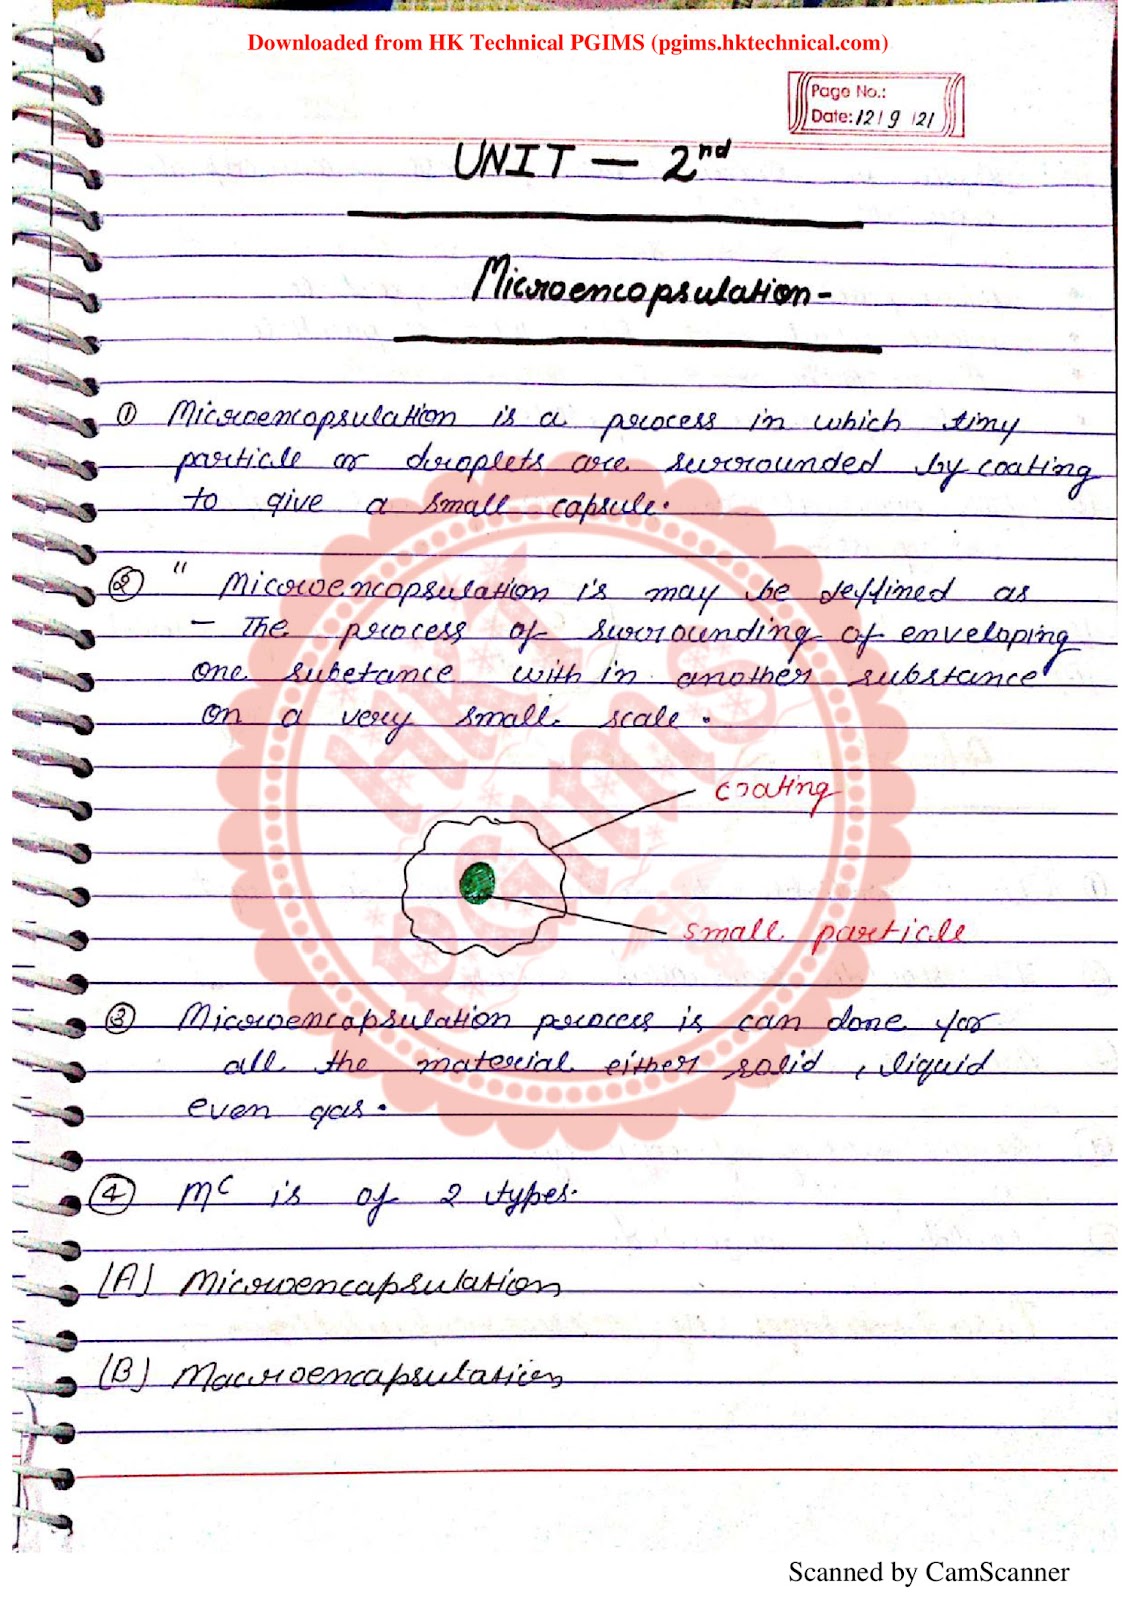 Downloaded from HK Technical PGIMS (pgims.hktechnical.com)
Page No.:
Date: 12 | 9 | 21
UNIT - 2nd
Microencapsulation-
① Microencapsulation is a process in which tiny
particle or droplets are surrounded by coating
to give a small capsule.
② " Microencapsulation is may be deffined as
- The process of surrounding of enveloping
one substance with in another substance
on a very small scale.
coating
small particle
③ Microencapsulation process is can done for
all the material either solid, liquid
even gas.
④ MC is of 2 types.
(A) Microencapsulation
(B) Macroencapsulation
HK
PGIMS
Scanned by CamScanner